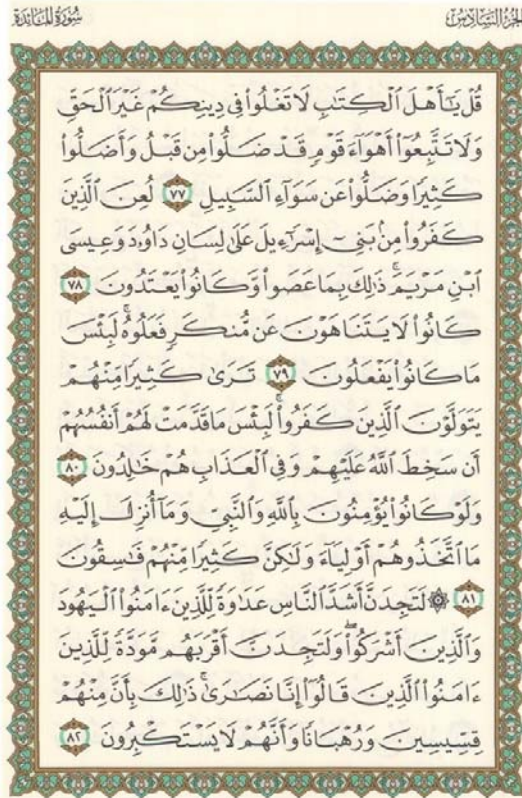 الجزء السادس
سورة المائدة
قُلْ يَٰٓأَهْلَ ٱلْكِتَٰبِ لَا تَغْلُوا۟ فِى دِينِكُمْ غَيْرَ ٱلْحَقِّ
وَلَا تَتَّبِعُوٓا۟ أَهْوَآءَ قَوْمٍ قَدْ ضَلُّوا۟ مِن قَبْلُ وَأَضَلُّوا۟
كَثِيرًا وَضَلُّوا۟ عَن سَوَآءِ ٱلسَّبِيلِ ٧٧ لُعِنَ ٱلَّذِينَ
كَفَرُوا۟ مِنۢ بَنِىٓ إِسْرَٰٓءِيلَ عَلَىٰ لِسَانِ دَاوُۥدَ وَعِيسَى
ٱبْنِ مَرْيَمَ ۚ ذَٰلِكَ بِمَا عَصَوا۟ وَّكَانُوا۟ يَعْتَدُونَ ٧٨
كَانُوا۟ لَا يَتَنَاهَوْنَ عَن مُّنكَرٍ فَعَلُوهُ ۚ لَبِئْسَ
مَا كَانُوا۟ يَفْعَلُونَ ٧٩ تَرَىٰ كَثِيرًا مِّنْهُمْ
يَتَوَلَّوْنَ ٱلَّذِينَ كَفَرُوا۟ ۚ لَبِئْسَ مَا قَدَّمَتْ لَهُمْ أَنفُسُهُمْ
أَن سَخِطَ ٱللَّهُ عَلَيْهِمْ وَفِى ٱلْعَذَابِ هُمْ خَٰلِدُونَ ٨٠
وَلَوْ كَانُوا۟ يُؤْمِنُونَ بِٱللَّهِ وَٱلنَّبِىِّ وَمَآ أُنزِلَ إِلَيْهِ
مَا ٱتَّخَذُوهُمْ أَوْلِيَآءَ وَلَٰكِنَّ كَثِيرًا مِّنْهُمْ فَٰسِقُونَ
٨١ ۞ لَتَجِدَنَّ أَشَدَّ ٱلنَّاسِ عَدَٰوَةً لِّلَّذِينَ ءَامَنُوا۟ ٱلْيَهُودَ
وَٱلَّذِينَ أَشْرَكُوا۟ ۖ وَلَتَجِدَنَّ أَقْرَبَهُم مَّوَدَّةً لِّلَّذِينَ
ءَامَنُوا۟ ٱلَّذِينَ قَالُوٓا۟ إِنَّا نَصَٰرَىٰ ۚ ذَٰلِكَ بِأَنَّ مِنْهُمْ
قِسِّيسِينَ وَرُهْبَانًا وَأَنَّهُمْ لَا يَسْتَكْبِرُونَ ٨٢